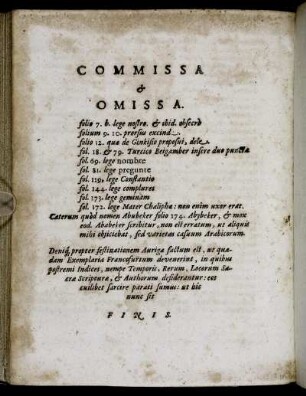 COMMISSA
&
OMISSA.
folio 7. b. lege nostro. & ibid. obsecrò
folium 9. 10. prorsus excind
folio 12. quæ de Gentisis proposui, dele
fol. 18. & 79. Turcico Beigamber insere duo puncta
fol. 69. lege nombre
fol. 81. lege pregunte
fol. 119, lege Constantio
fol. 144. lege complures
fol. 173. lege geminam
fol. 172. lege Mater Chalipha: non enim uxor erat.
Caterum quòd nomen Abubeker folio 174. Abybeker, & mox
eod. Ababeker scribitur, non est erratum, ut aliquis
mihi objiciebat, sed varietas casuum Arabicorum.
Deniq, propter festinationem Auriga factum est, ut quæ-
dam Exemplaria Francofurtum devenerint, in quibus
postremi Indices, nempe Temporis, Rerum, Locorum Sa-
cra Scripturæ, & Authorum desiderantur: eos
cuilibet sarcire parati sumus: ut his
nunc sit
FINIS.